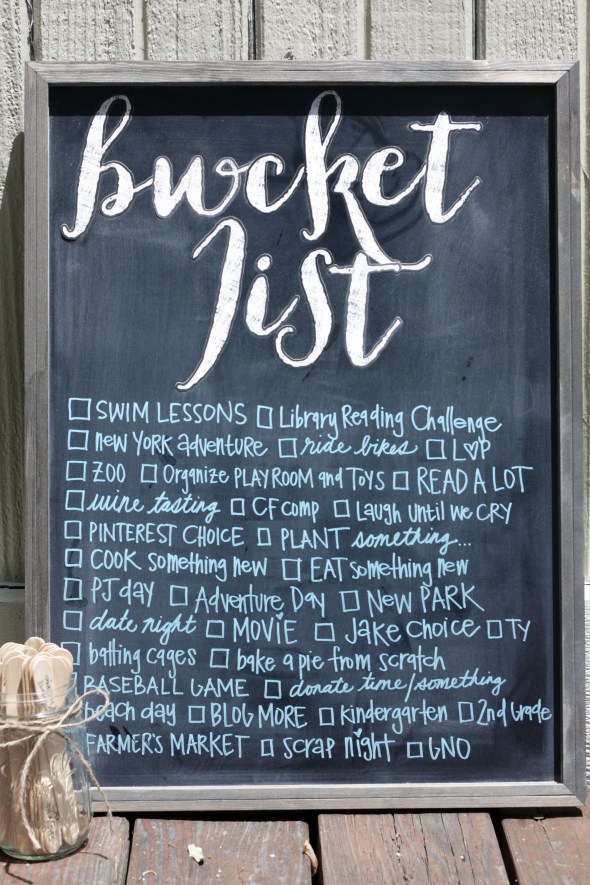 bucket
list
☐ SWIM LESSONS ☐ Library Reading Challenge
☐ new YORK adventure ☐ ride bikes ☐ L♥P
☐ ZOO ☐ Organize PLAY ROOM and TOYS ☐ READ A LOT
☐ wine tasting ☐ CF comp ☐ Laugh until we CRY
☐ PINTEREST CHOICE ☐ PLANT something...
☐ COOK something new ☐ EAT something new
☐ PJ day ☐ Adventure Day ☐ New PARK
☐ date night ☐ MOVIE ☐ Jake Choice ☐ TY
☐ batting cages ☐ bake a pie from scratch
BASEBALL GAME ☐ donate time/something
beach day ☐ BLOG MORE ☐ kindergarten ☐ 2nd Grade
FARMER'S MARKET ☐ scrap night ☐ GNO